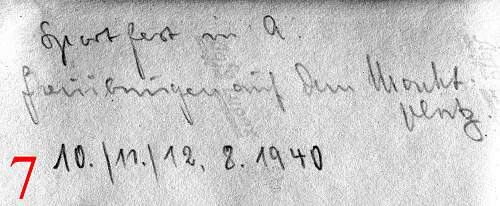 Sportfest in A.
Freiübungen auf dem Markt-
platz.
7 10./11./12. 8. 1940